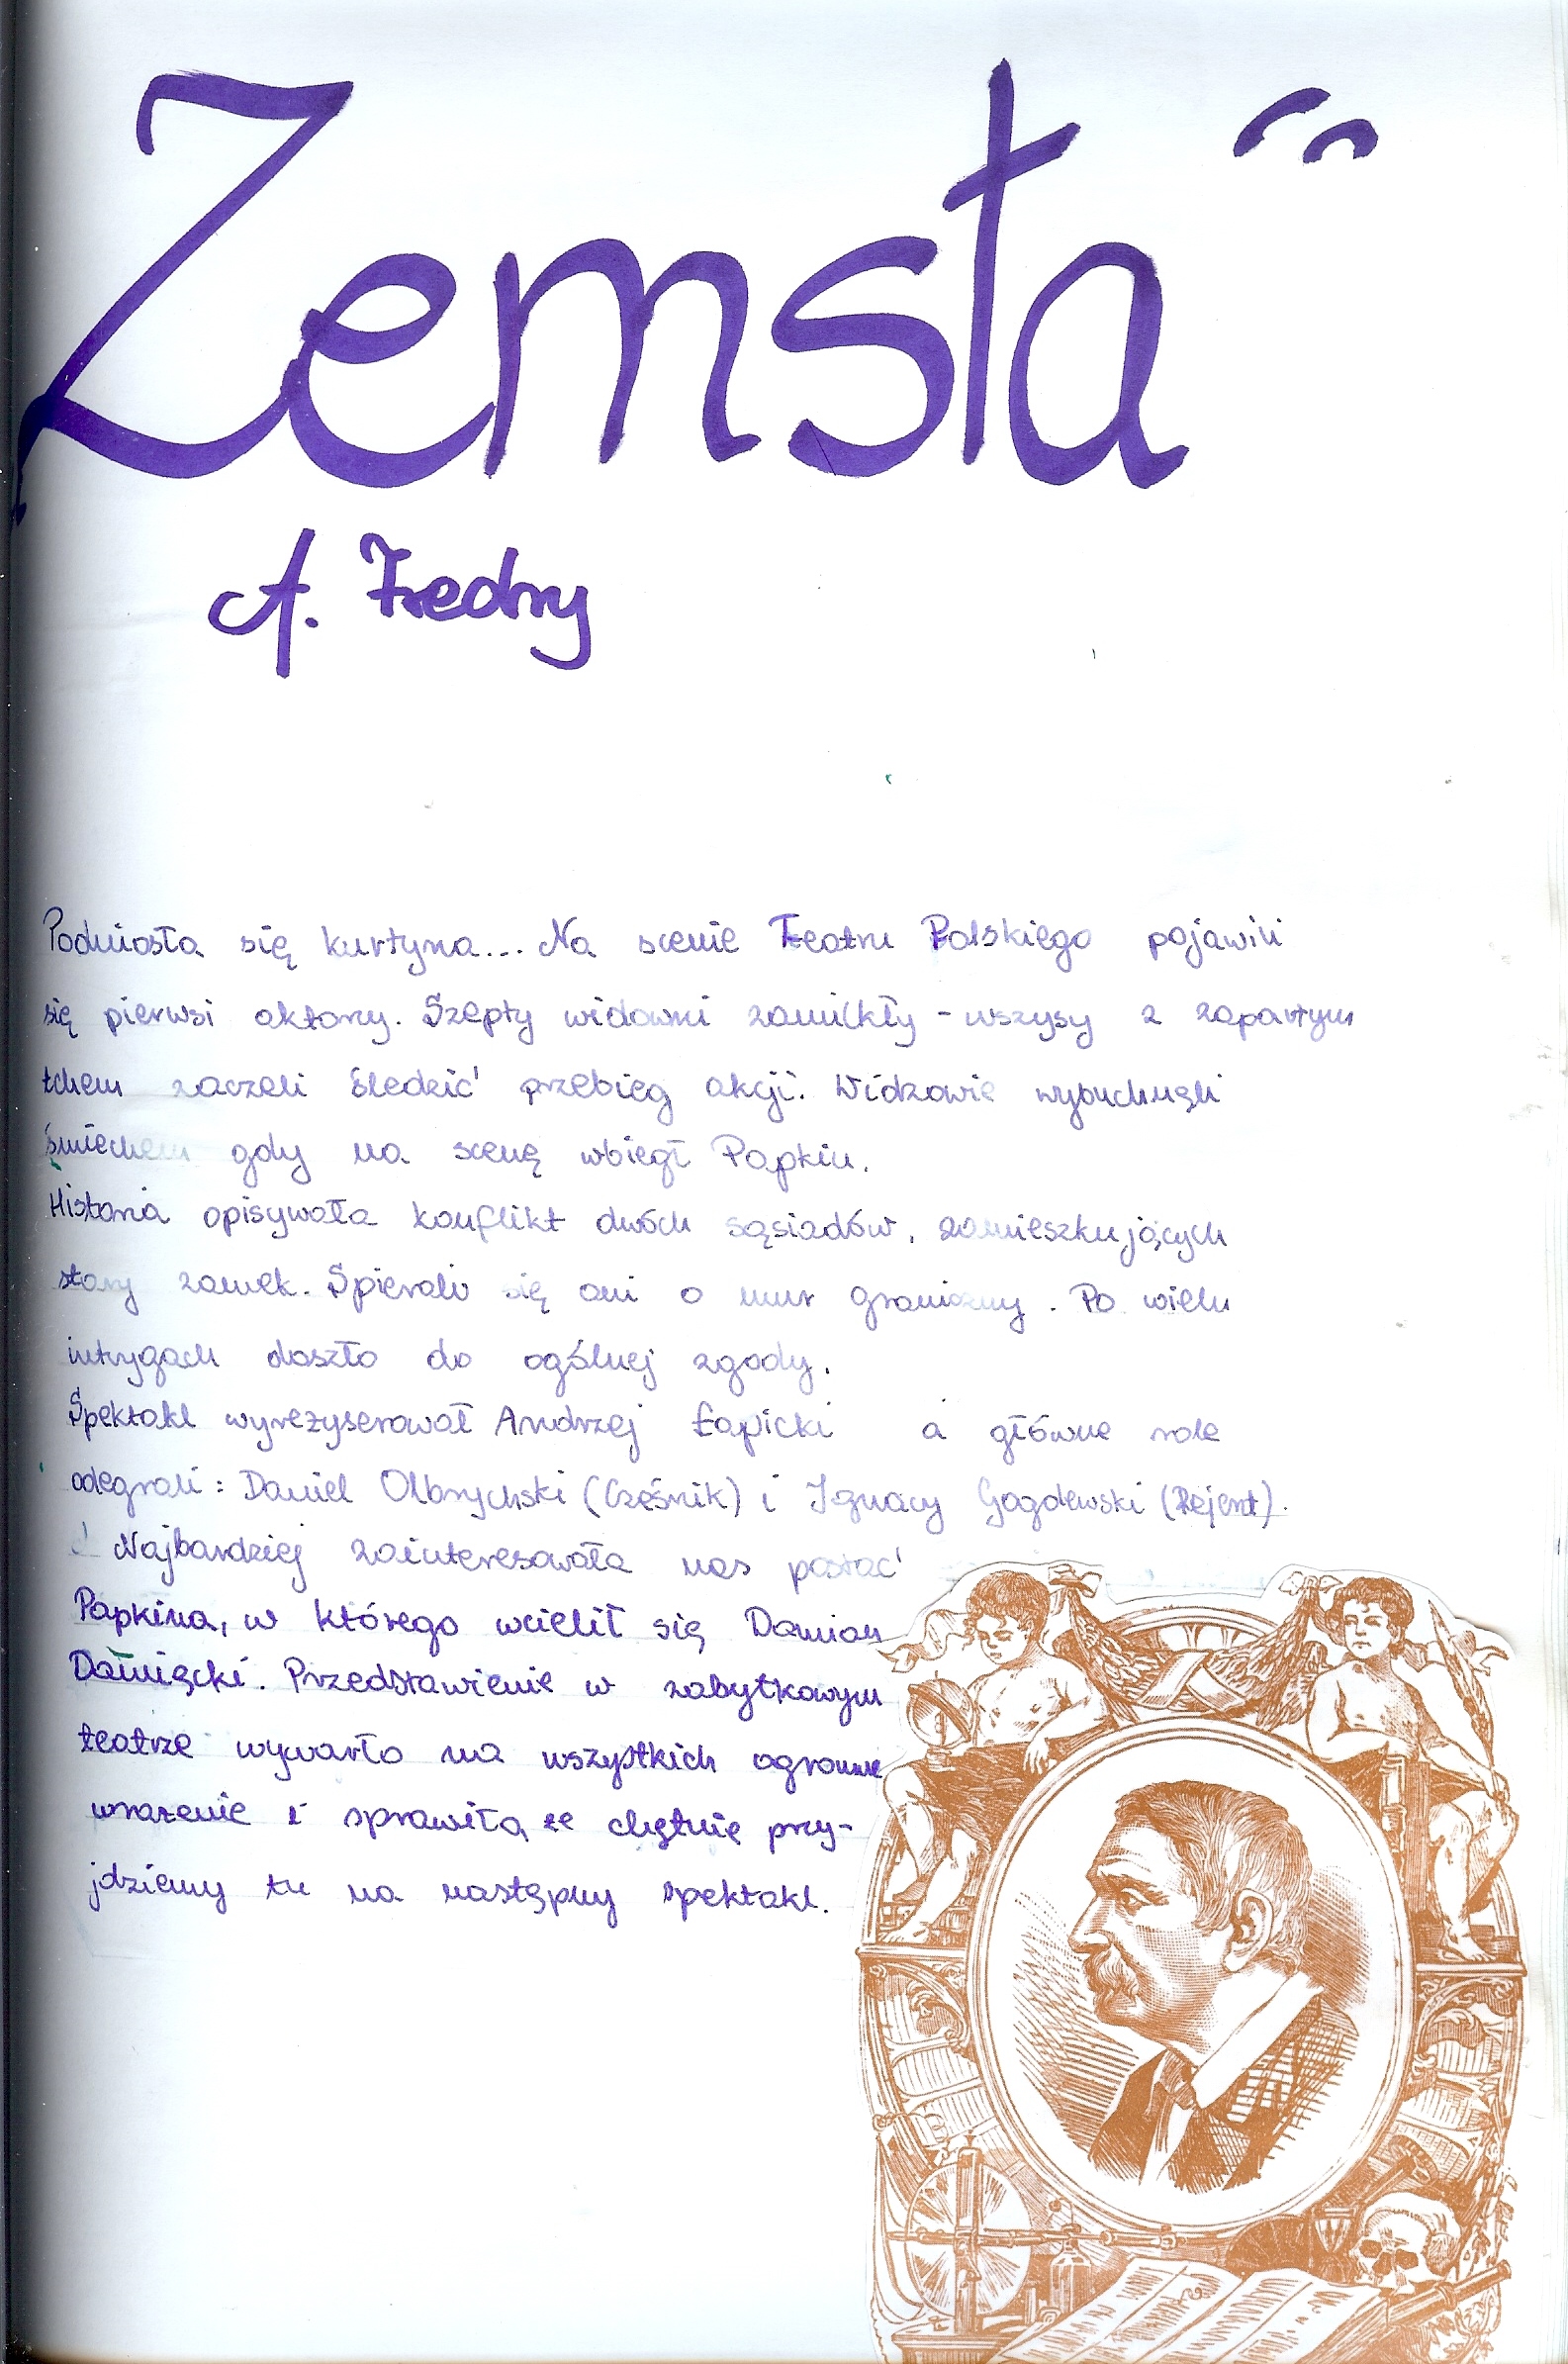 Zemsta"
A. Fredry
Podniosła się kurtyna... Na scenie Teatru Polskiego pojawili
się pierwsi aktorzy. Szepty widowni zamilkły - wszysy z zapartym
tchem zaczeli śledzić przebieg akcji. Widzowie wybuchneli
śmiechem gdy na scenę wbiegł Papkin.
Historia opisywała konflikt dwóch sąsiadów, zamieszkujących
stary zamek. Spierali się oni o mur graniczny. Po wielu
intrygach doszło do ogólnej zgody.
Spektakl wyreżyserował Andrzej Łapicki a główne role
odegrali: Daniel Olbrychski (Cześnik) i Ignacy Gogolewski (Rejent).
Najbardziej zainteresowała nas postać
Papkina, w którego wcielił się Damian
Damięcki. Przedstawienie w zabytkowym
teatrze wywarło na wszystkich ogromne
wrażenie i sprawiło, że chętnie przy-
jdziemy tu na następny spektakl.